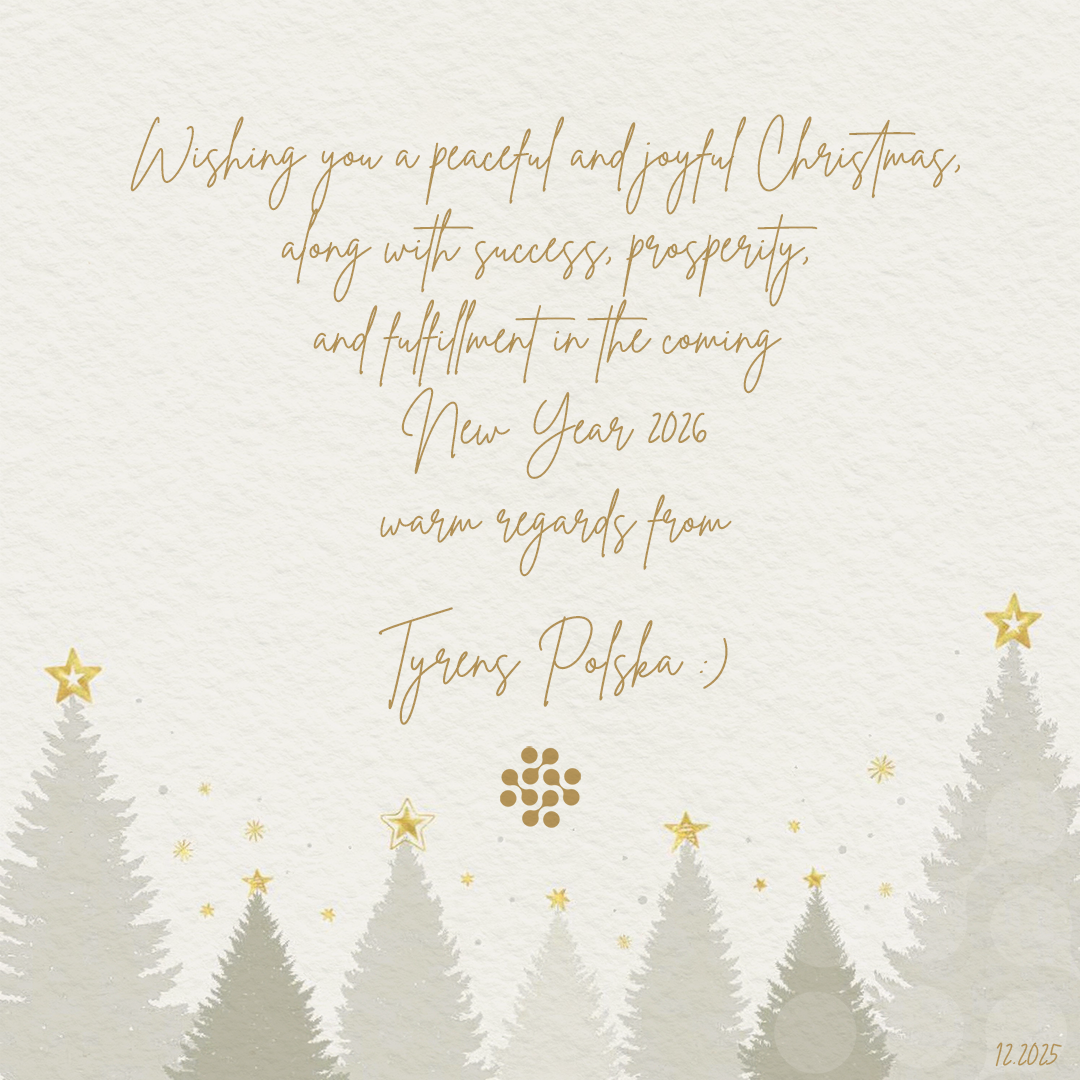 Wishing you a peaceful and joyful Christmas,
along with success, prosperity,
and fulfillment in the coming
New Year 2026
warm regards from
Tyrens Polska :)
12.2025